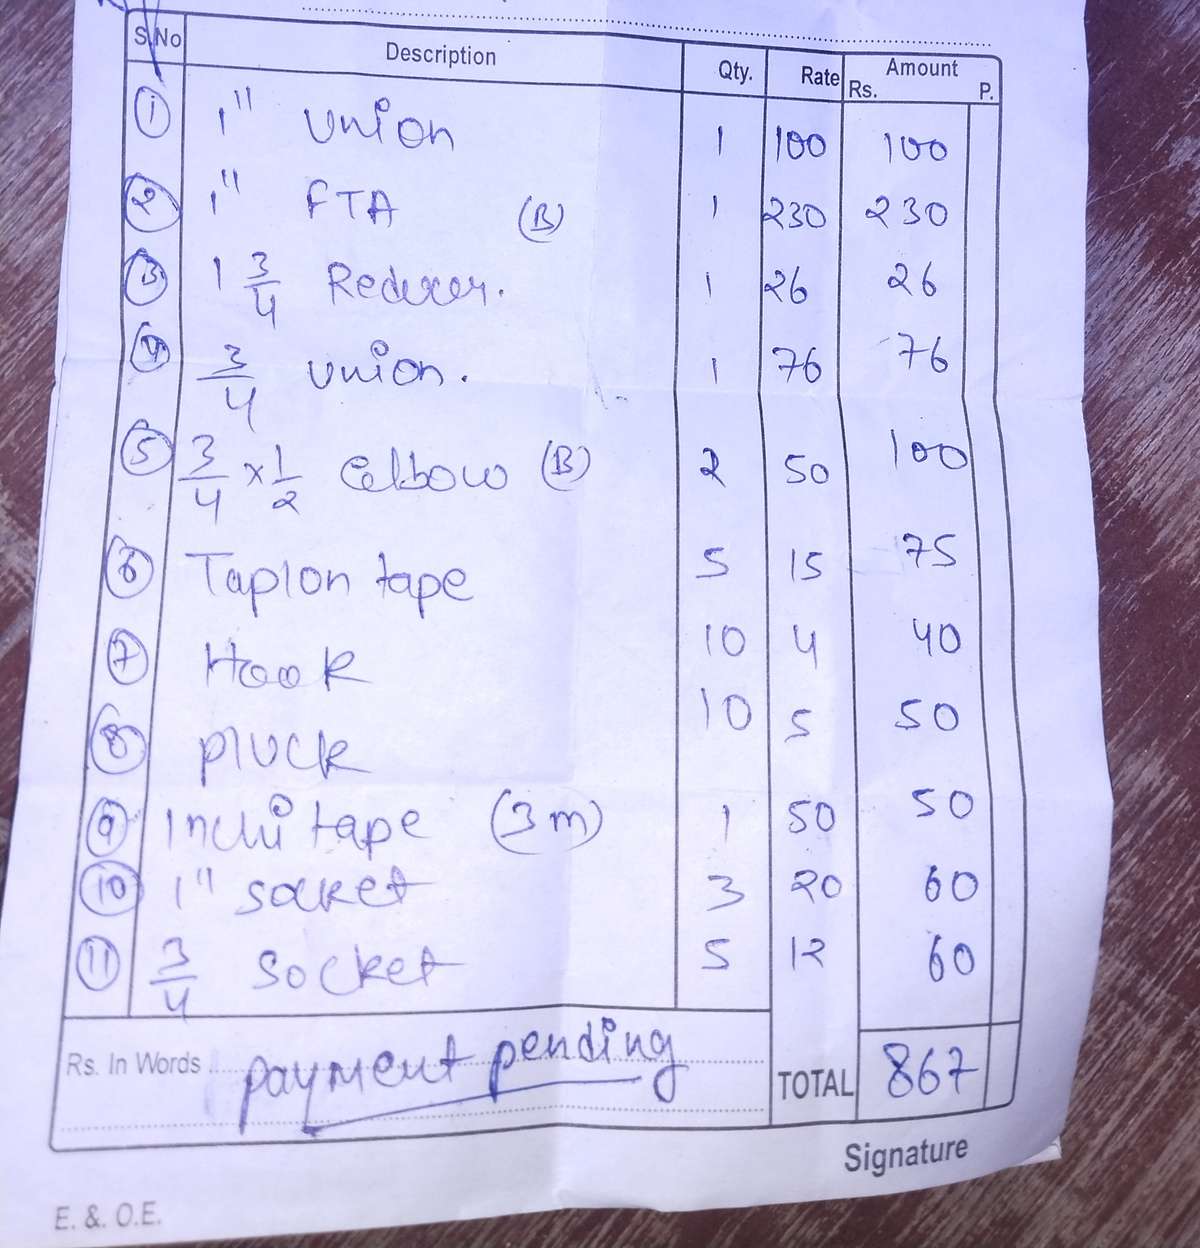 S.No Description Qty. Rate Amount
Rs. P.
1 1" Union 1 100 100
2 1" FTA (B) 1 230 230
3 1 3/4 Reducer. 1 26 26
4 3/4 Union. 1 76 76
5 3/4 x 1/2 Celbow (B) 2 50 100
6 Taplon tape 5 15 75
7 Hook 10 4 40
8 Pluck 10 5 50
9 Inchi tape (3m) 1 50 50
10 1" Socket 3 20 60
11 3/4 Socket 5 12 60
Rs. In Words payment pending
TOTAL 867
Signature
E. & O.E.